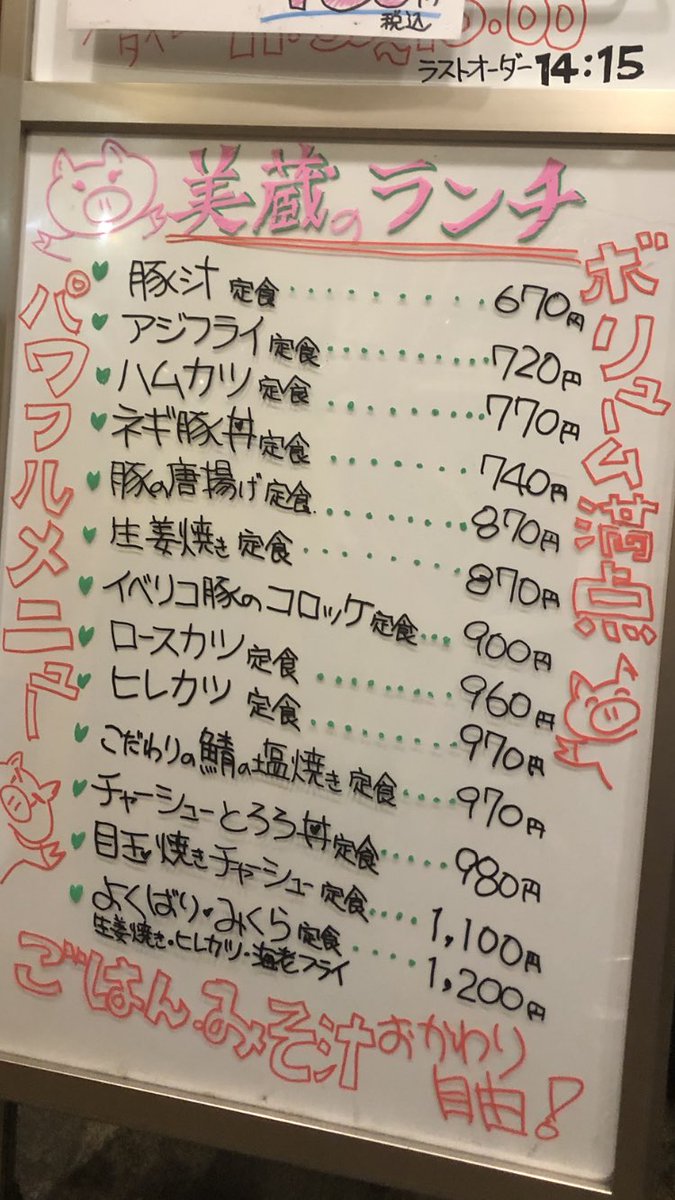 税込
ラストオーダー 14:15
美蔵のランチ
パワフルメニュー
ボリューム満点
豚汁定食 670円
アジフライ定食 720円
ハムカツ定食 770円
ネギ豚丼定食 740円
豚の唐揚げ定食 870円
生姜焼き定食 870円
イベリコ豚のコロッケ定食 900円
ロースカツ定食 960円
ヒレカツ定食 970円
こだわりの鯖の塩焼き定食 970円
チャーシューとろろ丼定食 980円
目玉焼きチャーシュー定食 1,100円
よくばり・みくら定食 1,200円
生姜焼き・ヒレカツ・海老フライ
ごはん・みそ汁おかわり
自由!